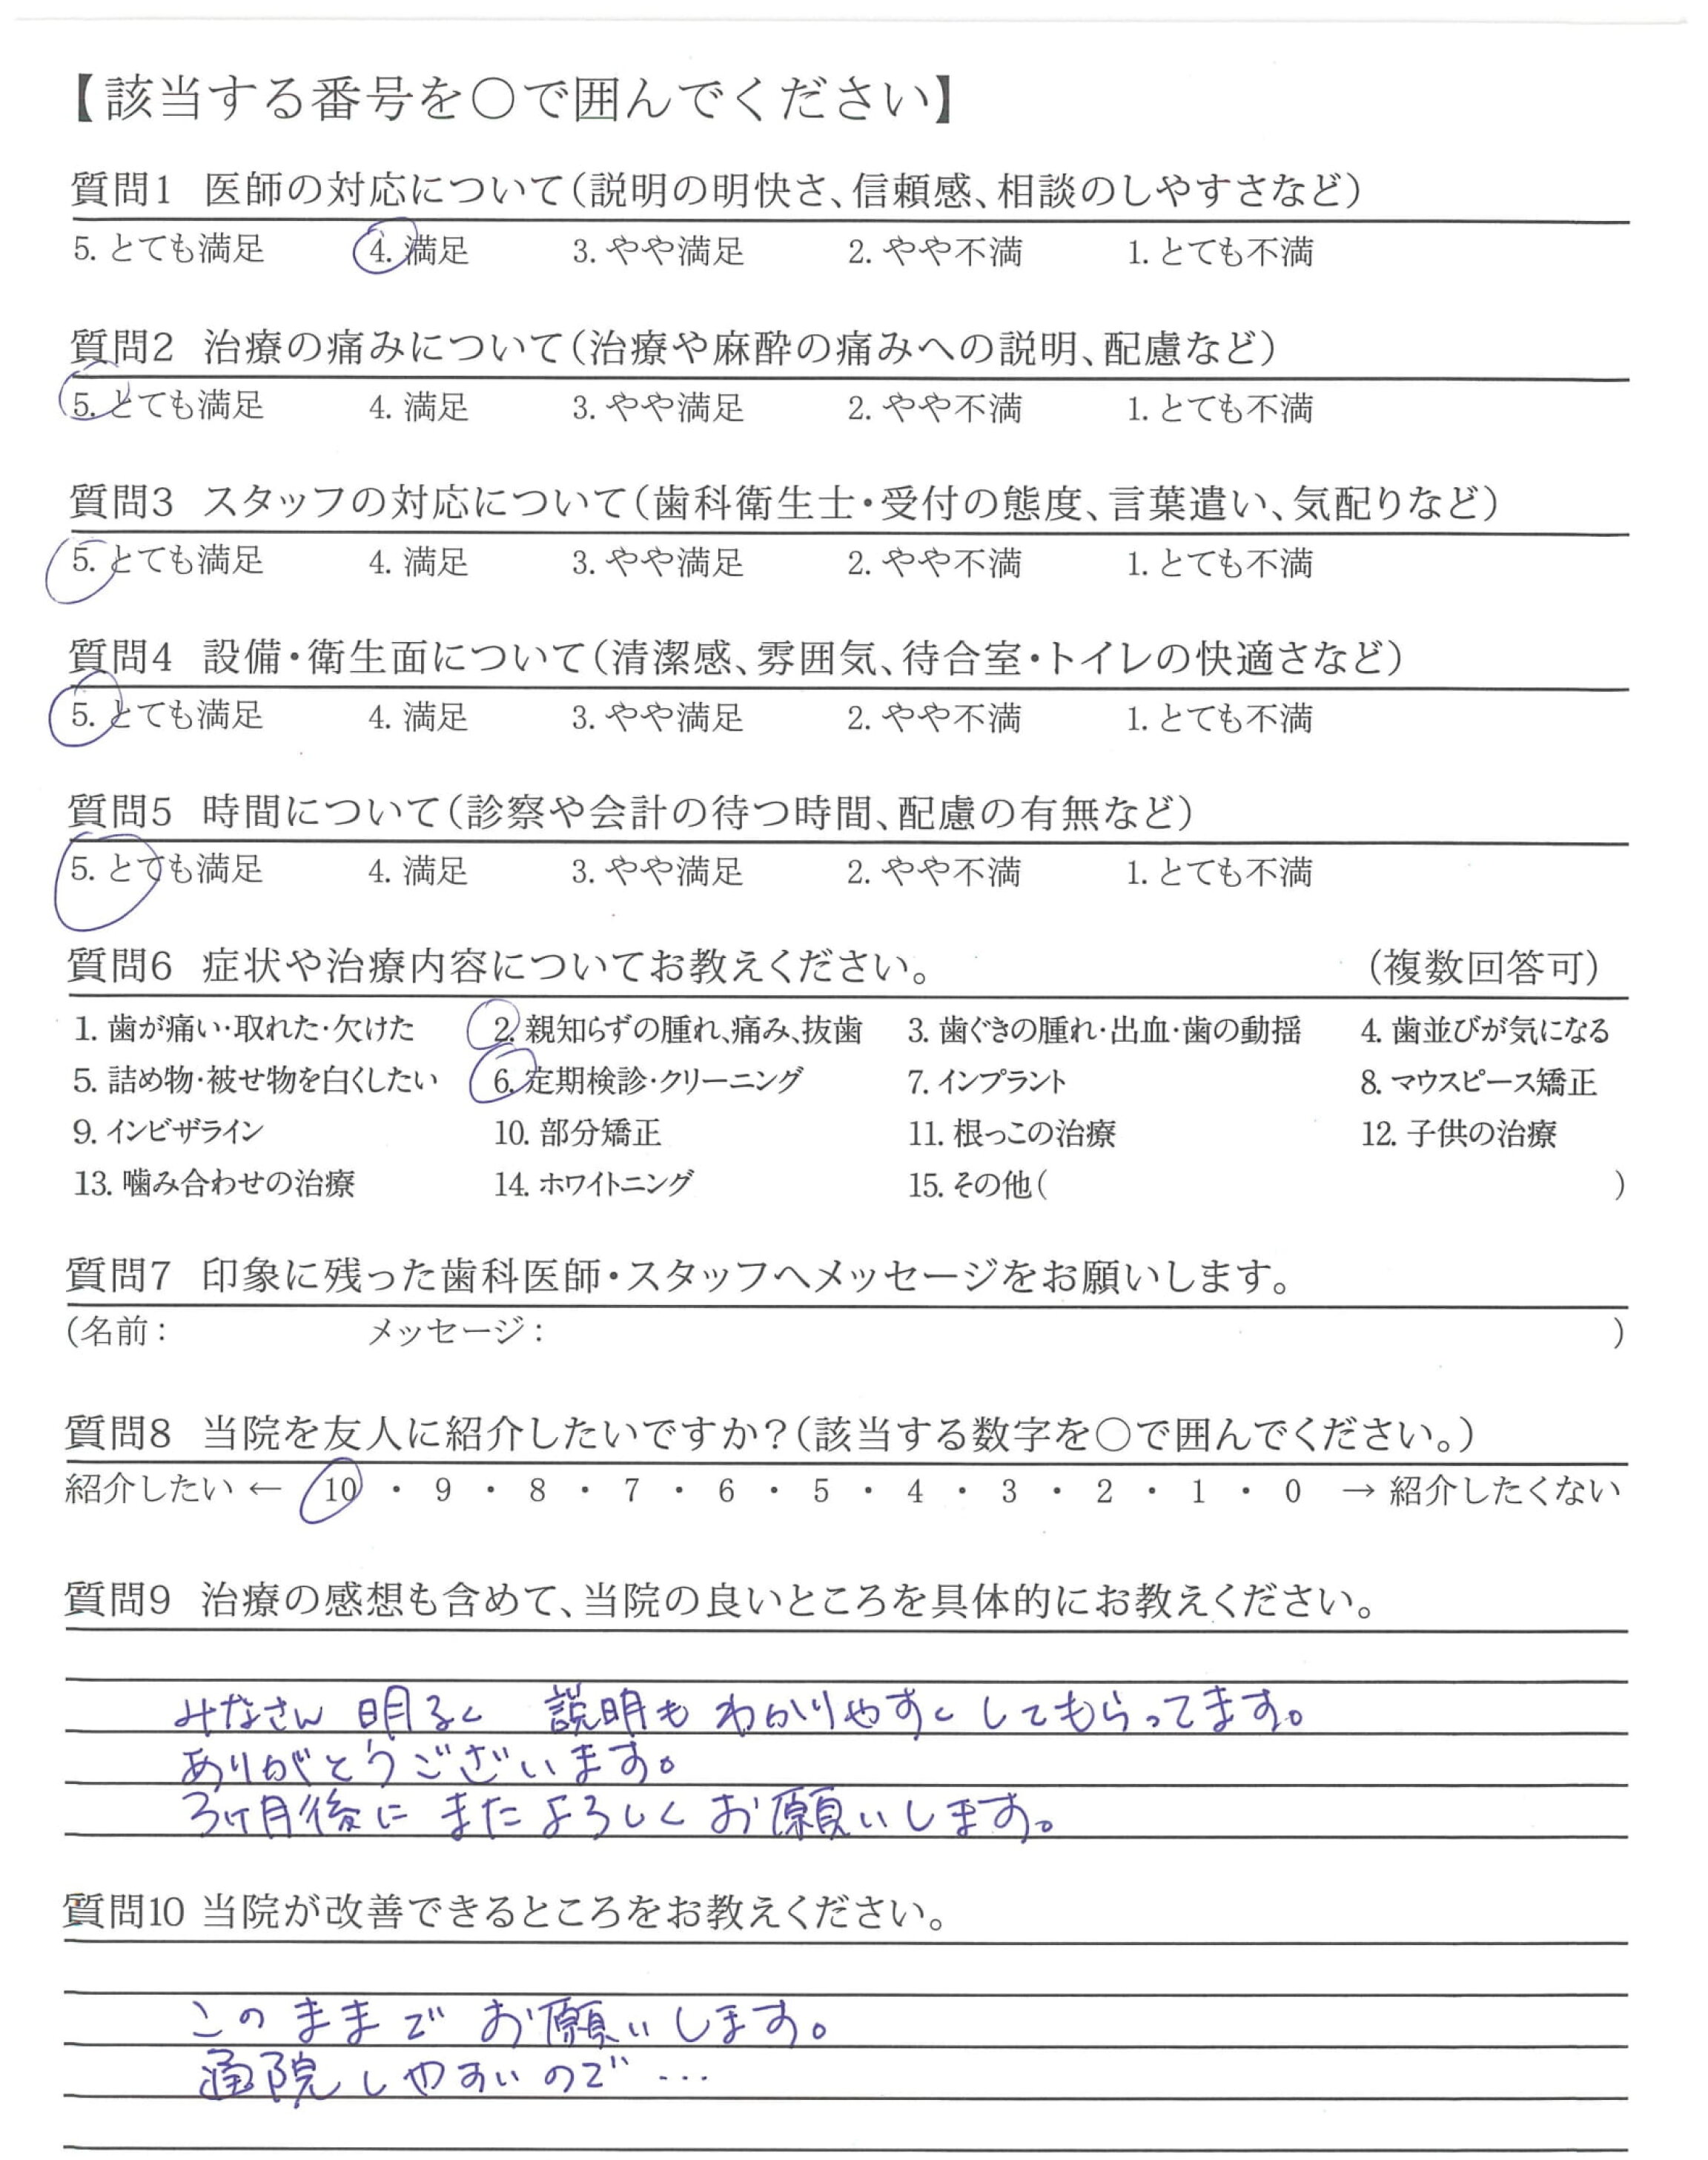 【該当する番号を○で囲んでください】
質問1 医師の対応について（説明の明快さ、信頼感、相談のしやすさなど）
5. とても満足 4. 満足 3. やや満足 2. やや不満 1. とても不満
質問2 治療の痛みについて（治療や麻酔の痛みへの説明、配慮など）
5. とても満足 4. 満足 3. やや満足 2. やや不満 1. とても不満
質問3 スタッフの対応について（歯科衛生士・受付の態度、言葉遣い、気配りなど）
5. とても満足 4. 満足 3. やや満足 2. やや不満 1. とても不満
質問4 設備・衛生面について（清潔感、雰囲気、待合室・トイレの快適さなど）
5. とても満足 4. 満足 3. やや満足 2. やや不満 1. とても不満
質問5 時間について（診察や会計の待つ時間、配慮の有無など）
5. とても満足 4. 満足 3. やや満足 2. やや不満 1. とても不満
質問6 症状や治療内容についてお教えください。 （複数回答可）
1. 歯が痛い・取れた・欠けた 2. 親知らずの腫れ、痛み、抜歯 3. 歯ぐきの腫れ・出血・歯の動揺 4. 歯並びが気になる
5. 詰め物・被せ物を白くしたい 6. 定期検診・クリーニング 7. インプラント 8. マウスピース矯正
9. インビザライン 10. 部分矯正 11. 根っこの治療 12. 子供の治療
13. 噛み合わせの治療 14. ホワイトニング 15. その他（ ）
質問7 印象に残った歯科医師・スタッフへメッセージをお願いします。
（名前： メッセージ： ）
質問8 当院を友人に紹介したいですか？（該当する数字を○で囲んでください。）
紹介したい ← 10 ・ 9 ・ 8 ・ 7 ・ 6 ・ 5 ・ 4 ・ 3 ・ 2 ・ 1 ・ 0 → 紹介したくない
質問9 治療の感想も含めて、当院の良いところを具体的にお教えください。
みなさん 明るく 説明も わかりやすく してもらってます。
ありがとうございます。
3ヶ月後に またよろしく お願いします。
質問10 当院が改善できるところをお教えください。
このままで お願いします。
通院しやすいので…